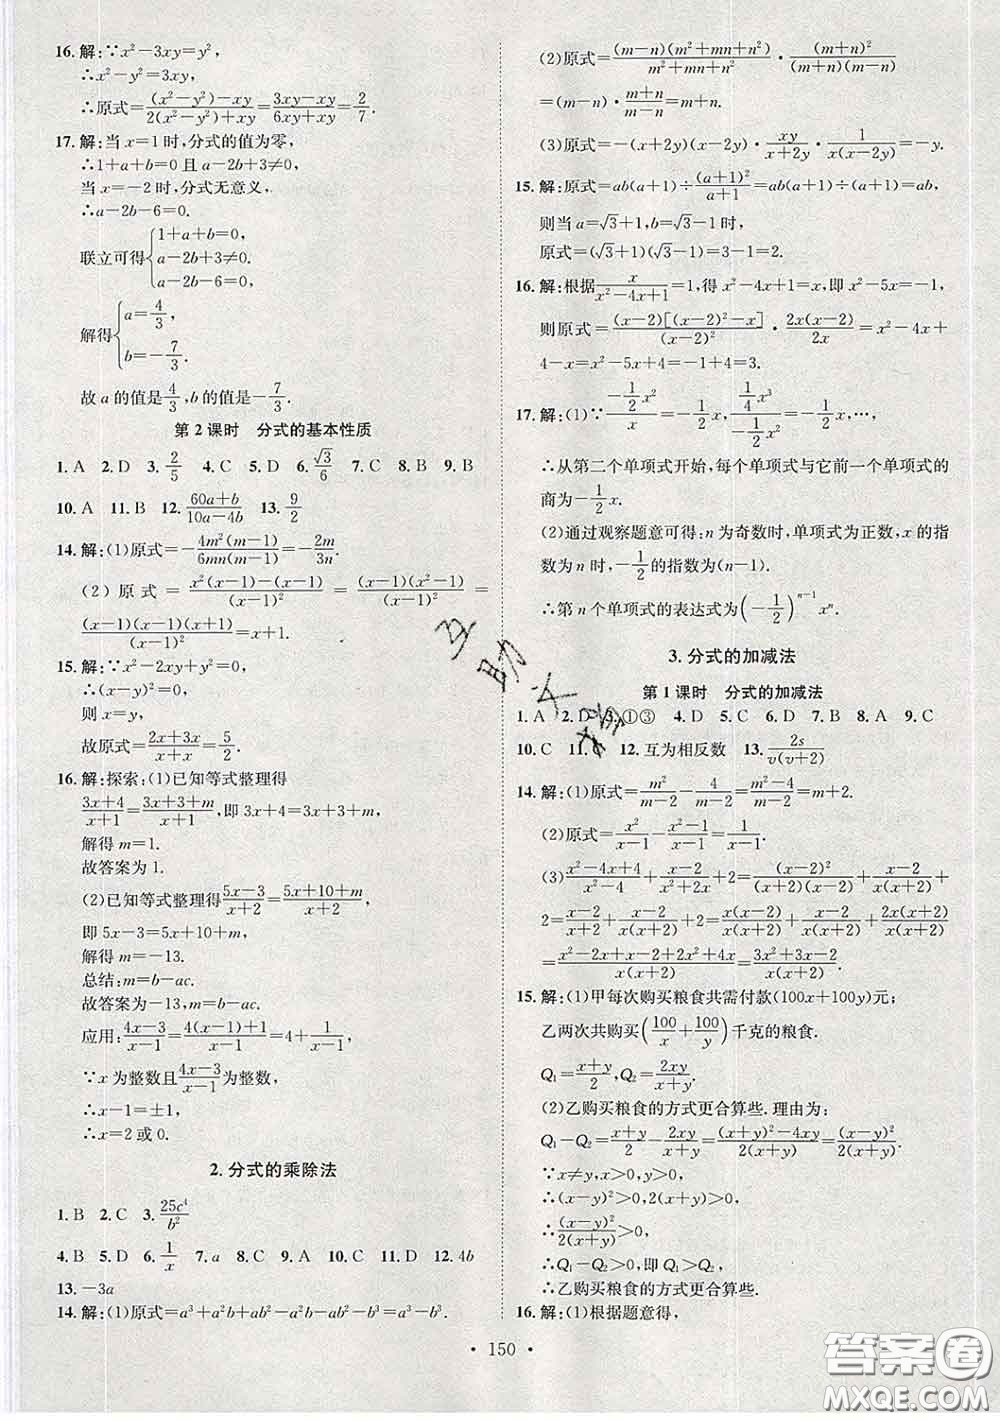 16. 解:∵x²-3xy=y²,
∴x²-y²=3xy,
∴原式=\frac{(x²-y²)-xy}{2(x²-y²)+xy}=\frac{3xy-xy}{6xy+xy}=\frac{2}{7}.
17. 解:当 x=1 时,分式的值为零,
∴1+a+b=0 且 a-2b+3≠0.
当 x=-2 时,分式无意义,
∴a-2b-6=0.
联立可得{1+a+b=0, a-2b+3≠0. a-2b-6=0,
解得{a=\frac{4}{3}, b=-\frac{7}{3}.
故 a 的值是\frac{4}{3},b 的值是-\frac{7}{3}.
第 2 课时 分式的基本性质
1. A 2. D 3. \frac{2}{5} 4. C 5. D 6. \frac{√3}{6} 7. C 8. B 9. B
10. A 11. B 12. \frac{60a+b}{10a-4b} 13. \frac{9}{2}
14. 解:(1)原式=-\frac{4m²(m-1)}{6mn(m-1)}=-\frac{2m}{3n}.
(2) 原式=\frac{x²(x-1)-(x-1)}{(x-1)²}=\frac{(x-1)(x²-1)}{(x-1)²}=
\frac{(x-1)(x-1)(x+1)}{(x-1)²}=x+1.
15. 解:∵x²-2xy+y²=0,
∴(x-y)²=0,
则 x=y,
故原式=\frac{2x+3x}{x+x}=\frac{5}{2}.
16. 解:探索:(1)已知等式整理得
\frac{3x+4}{x+1}=\frac{3x+3+m}{x+1},即 3x+4=3x+3+m,
解得 m=1.
故答案为 1.
(2)已知等式整理得\frac{5x-3}{x+2}=\frac{5x+10+m}{x+2},
即 5x-3=5x+10+m,
解得 m=-13.
总结:m=b-ac.
故答案为-13,m=b-ac.
应用:\frac{4x-3}{x-1}=\frac{4(x-1)+1}{x-1}=4+\frac{1}{x-1},
∵x 为整数且\frac{4x-3}{x-1}为整数,
∴x-1=±1,
∴x=2 或 0.
2. 分式的乘除法
1. B 2. C 3. \frac{25c⁴}{b²}
4. B 5. D 6. \frac{1}{x} 7. a 8. C 9. C 10. C 11. D 12. 4b
13. -3a
14. 解:(1)原式=a³+a²b+ab²-a²b-ab²-b³=a³-b³.
(2)原式=\frac{(m-n)(m²+mn+n²)}{m²+mn+n²}·\frac{(m+n)²}{(m+n)(m-n)}·\frac{m-n}{m+n}
=(m-n)·\frac{m+n}{m+n}=m+n.
(3)原式=-(x+2y)(x-2y)·\frac{xy}{x+2y}·\frac{1}{x(x-2y)}=-y.
15. 解:原式=ab(a+1)÷\frac{(a+1)²}{a+1}=ab(a+1)÷(a+1)=ab,
则当 a=√3+1,b=√3-1 时,
原式=(√3+1)(√3-1)=3-1=2.
16. 解:根据\frac{x}{x²-4x+1}=1,得 x²-4x+1=x,即 x²-5x=-1,
则原式=\frac{(x-2)[(x-2)²-x]}{(x-2)²}·\frac{2x(x-2)}{2x}=x²-4x+
4-x=x²-5x+4=-1+4=3.
17. 解:(1)∵\frac{-\frac{1}{2}x²}{x}=-\frac{1}{2}x,\frac{\frac{1}{4}x³}{-\frac{1}{2}x²}=-\frac{1}{2}x,…,
∴从第二个单项式开始,每个单项式与它前一个单项式的
商为-\frac{1}{2}x.
(2)通过观察题意可得:n 为奇数时,单项式为正数,x 的指
数为 n 时,-\frac{1}{2}的指数为(n-1).
∴第 n 个单项式的表达式为(-\frac{1}{2})ⁿ⁻¹xⁿ.
3. 分式的加减法
第 1 课时 分式的加减法
1. A 2. D 3. ①③ 4. D 5. C 6. D 7. B 8. A 9. C
10. C 11. C 12. 互为相反数 13. \frac{2s}{v(v+2)}
14. 解:(1)原式=\frac{m²}{m-2}-\frac{4}{m-2}=\frac{m²-4}{m-2}=m+2.
(2)原式=\frac{x²}{x-1}-\frac{x²-1}{x-1}=\frac{1}{x-1}.
(3)\frac{x²-4x+4}{x²-4}+\frac{x-2}{x²+2x}+2=\frac{(x-2)²}{(x+2)(x-2)}+\frac{x-2}{x(x+2)}+
2=\frac{x-2}{x+2}+\frac{x-2}{x(x+2)}+2=\frac{x(x-2)}{x(x+2)}+\frac{x-2}{x(x+2)}+\frac{2x(x+2)}{x(x+2)}=
\frac{x²-2x+x-2+2x²+4x}{x(x+2)}=\frac{3x²+3x-2}{x(x+2)}.
15. 解:(1)甲每次购买粮食共需付款(100x+100y)元;
乙两次共购买(\frac{100}{x}+\frac{100}{y})千克的粮食.
Q₁=\frac{x+y}{2},Q₂=\frac{2xy}{x+y}.
(2)乙购买粮食的方式更合算些. 理由为:
Q₁-Q₂=\frac{x+y}{2}-\frac{2xy}{x+y}=\frac{(x+y)²-4xy}{2(x+y)}=\frac{(x-y)²}{2(x+y)}.
∵x≠y,x>0,y>0,
∴(x-y)²>0,2(x+y)>0,
∴\frac{(x-y)²}{2(x+y)}>0,
∴Q₁-Q₂>0,即 Q₁>Q₂,
∴乙购买粮食的方式更合算些.
16. 解:(1)根据题意得,
· 150 ·
答案圈
MXQE.COM